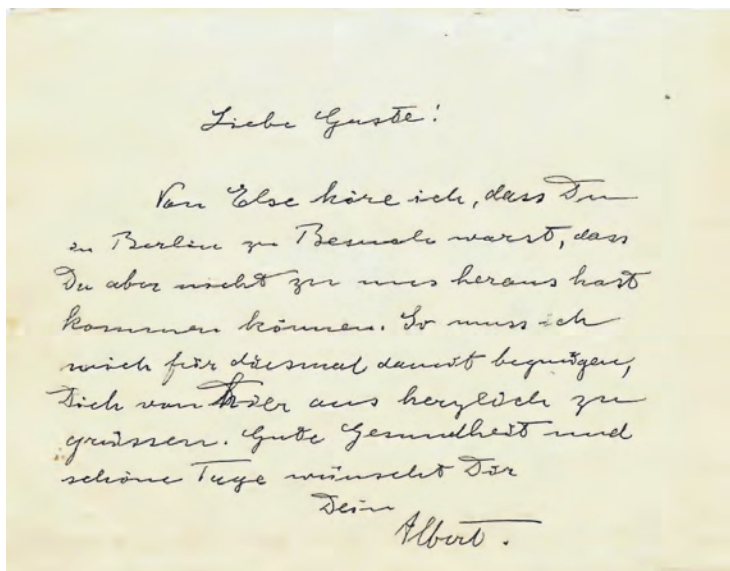 Liebe Guste!
Von Else höre ich, dass Du
in Berlin zu Besuch warst, dass
Du aber nicht zu uns heraus hast
kommen können. So muss ich
mich für diesmal damit begnügen,
Dich von hier aus herzlich zu
grüssen. Gute Gesundheit und
schöne Tage wünscht Dir
Dein
Albert.